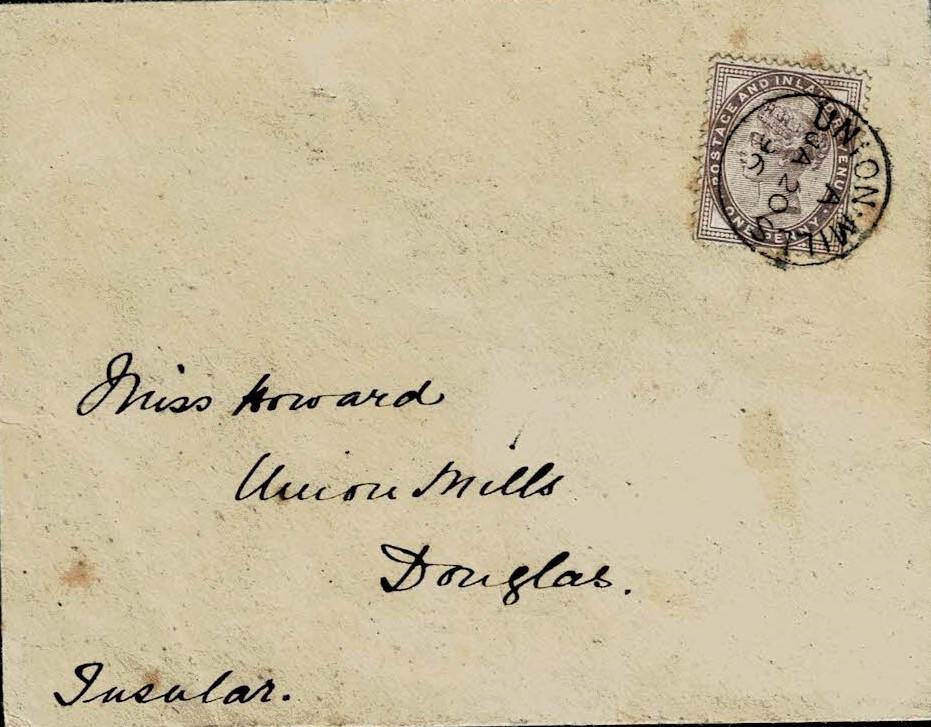 POSTAGE AND INLAND REVENUE
ONE PENNY
UNION·MILLS
A
JA 20
96
Miss Howard
Union Mills
Douglas.
Insular.